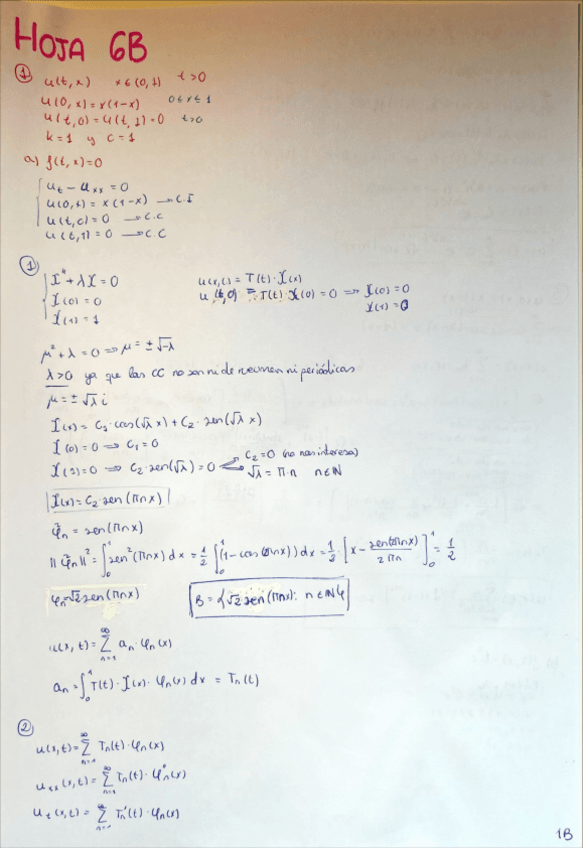 HOJA 6B
① u(t,x) x∈(0,1) t>0
u(0,x)=x(1-x) 0≤x≤1
u(t,0)=u(t,1)=0 t>0
k=1 y c=1
a) f(t,x)=0
u_t - u_xx = 0
u(0,x)=x(1-x) → C.I
u(t,0)=0 → C.C
u(t,1)=0 → C.C
①
X''+λX=0 u(x,t)=T(t)·X(x)
X(0)=0 u(t,0)=T(t)·X(0)=0 ⇒ X(0)=0
X(1)=1 X(1)=0
μ²+λ=0 ⇒ μ=±√-λ
λ>0 ya que las CC no son ni de neumen ni periódicas
μ=±√λ i
X(x)=C₁·cos(√λ x)+C₂·sen(√λ x)
X(0)=0 ⇒ C₁=0
X(1)=0 ⇒ C₂·sen(√λ)=0 C₂=0 (no nos interesa)
√λ=Π·n n∈ℕ
X(x)=C₂·sen(Πnx)
φ̃n=sen(Πnx)
||φ̃n||²=∫₀¹sen²(Πnx)dx=1/2∫₀¹(1-cos(2Πnx))dx=1/2[x-sen(2Πnx)/2Πn]₀¹=1/2
φn=√2sen(Πnx) B={√2sen(Πnx): n∈ℕ}
u(x,t)=∑_{n=1}^∞ an·φn(x)
an=∫₀¹T(t)·X(x)·φn(x)dx=Tn(t)
②
u(x,t)=∑_{n=1}^∞ Tn(t)·φn(x)
u_xx(x,t)=∑_{n=1}^∞ Tn(t)·φn''(x)
u_t(x,t)=∑_{n=1}^∞ Tn'(t)·φn(x)
1B